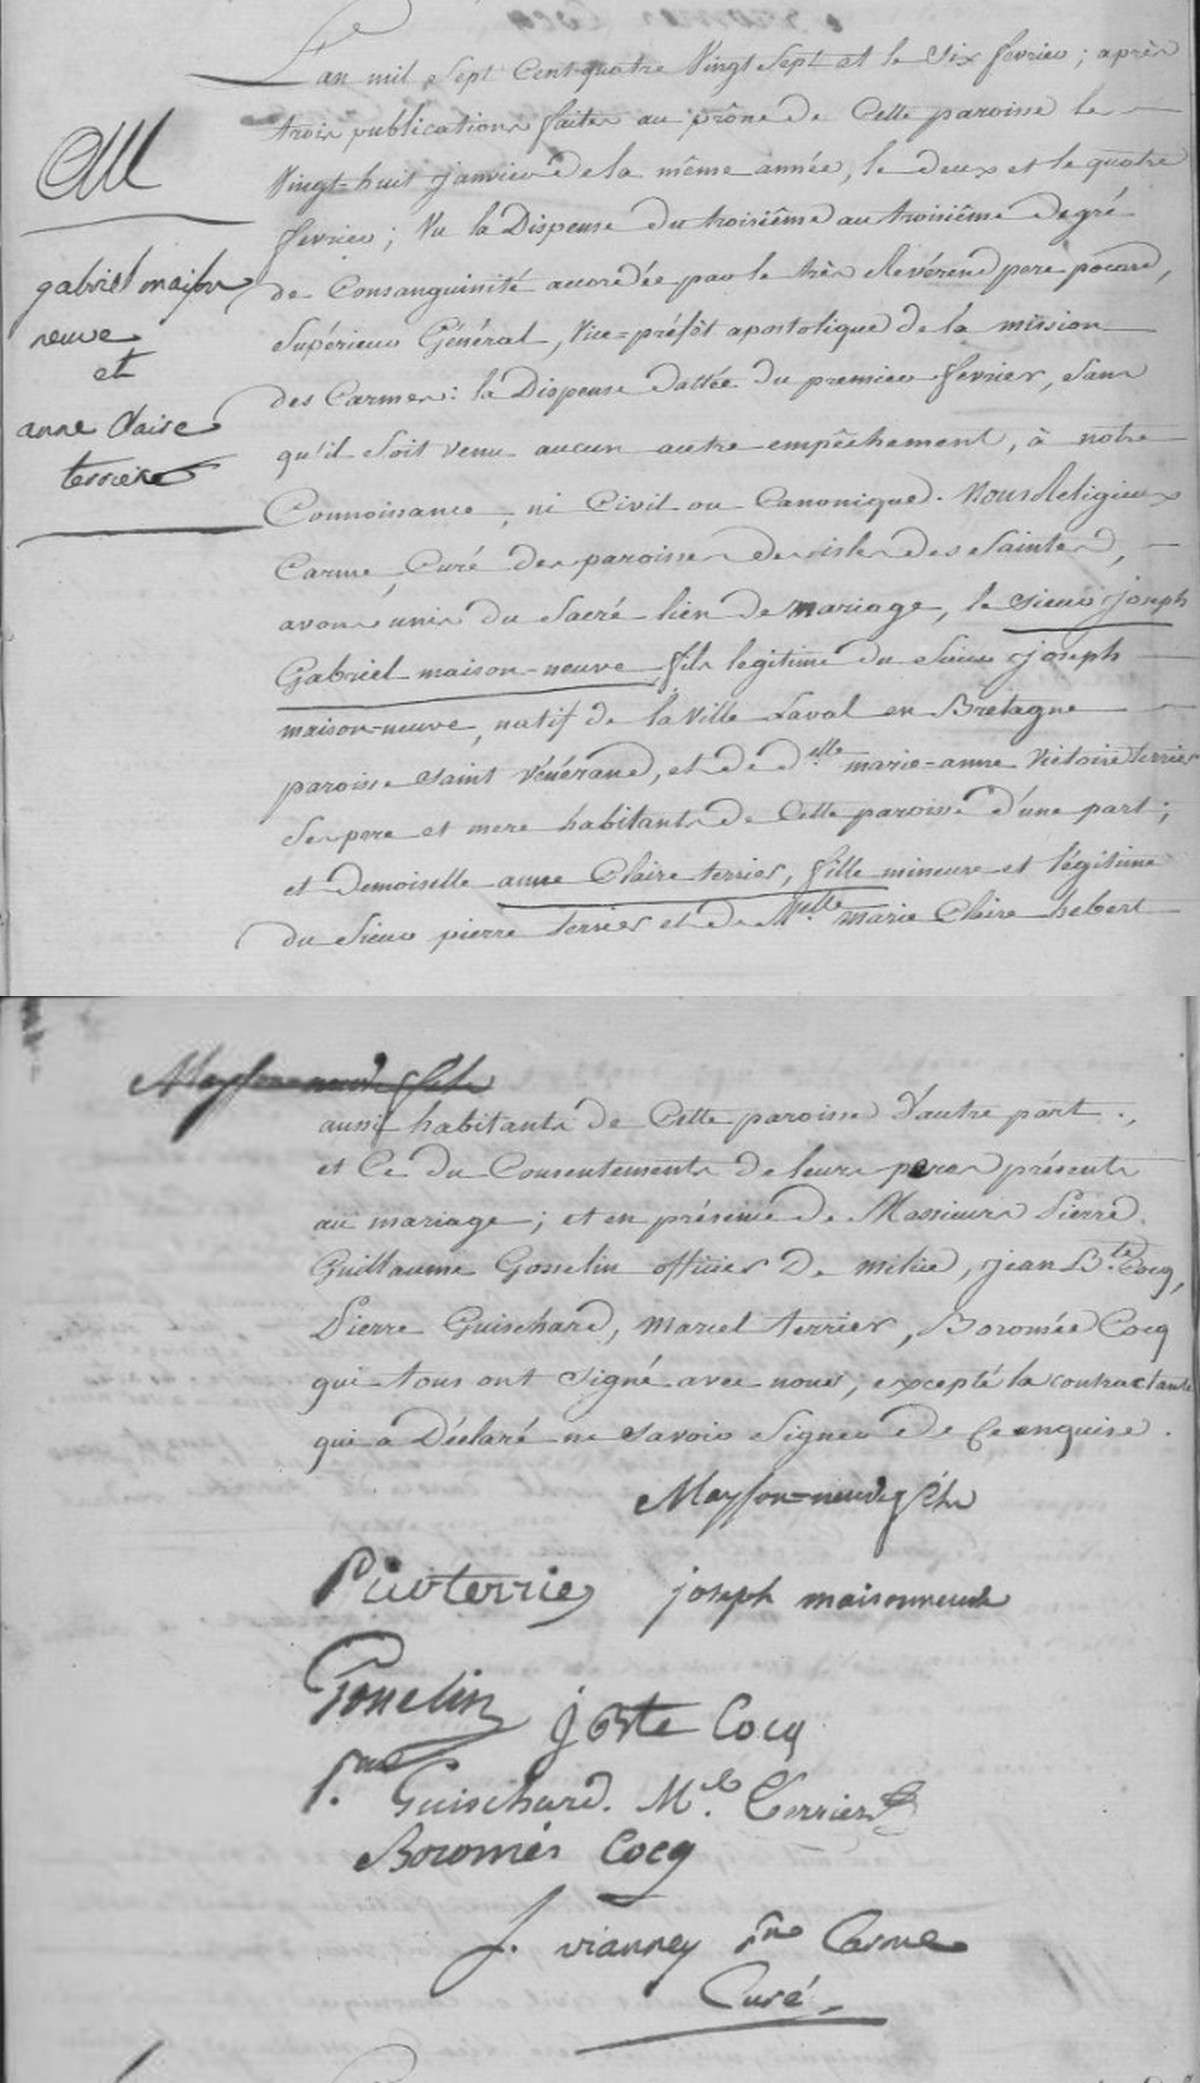 L'an mil Sept Cent quatre Vingt Sept et le Six fevrier ; après
trois publications faites au prône de Cette paroisse le
Vingt-huit janvier de la même année, le deux et le quatre
fevrier ; Vu la Dispense du troisiême au troisiême degré
de Consanguinité accordée par le très Revérend pere
Supérieur Général, Vice=préfêt apostolique de la mission
des Carmes : la Dispense dattée du premier fevrier, sans
qu'il soit venu aucun autre empêchement, à notre
Connoissance, ni Civil ou Canonique. Nous Religieux
Carme, Curé des paroisses des isles des Saintes,
avons unis du Sacré lien de mariage, le sieur joseph
Gabriel maison-neuve fils legitime du Sieur joseph
maison-neuve, natif de la Ville Laval en Bretagne
paroisse saint Vénérand, et de d.elle marie-anne Victoire terrier
Ses pere et mere habitants de Cette paroisse d'une part ;
et Demoiselle anne Claire terrier, fille mineure et légitime
du Sieur pierre terrier et de Melle marie Claire hebert
CM
gabriel maison
neuve
et
anne Claire
terrier
aussi habitants de Cette paroisse d'autre part ;
et Ce du Consentements de leurs peres présents
au mariage ; et en présence de Messieurs Pierre
Guillaume Gosselin officier de milice, jean B.te Cocq,
Pierre Guischard, Marcel terrier, Boromée Cocq
qui tous ont signé avec nous, excepté la contractante
qui a Déclaré ne savoir Signer de Ce enquise.
Mayson=neuve fils
Pierre terrier joseph maisonneuve
Gosselin j Bte Cocq
P.re Guischard. M.el Terrier
Boromée Cocq
f. vianney Carme
Curé